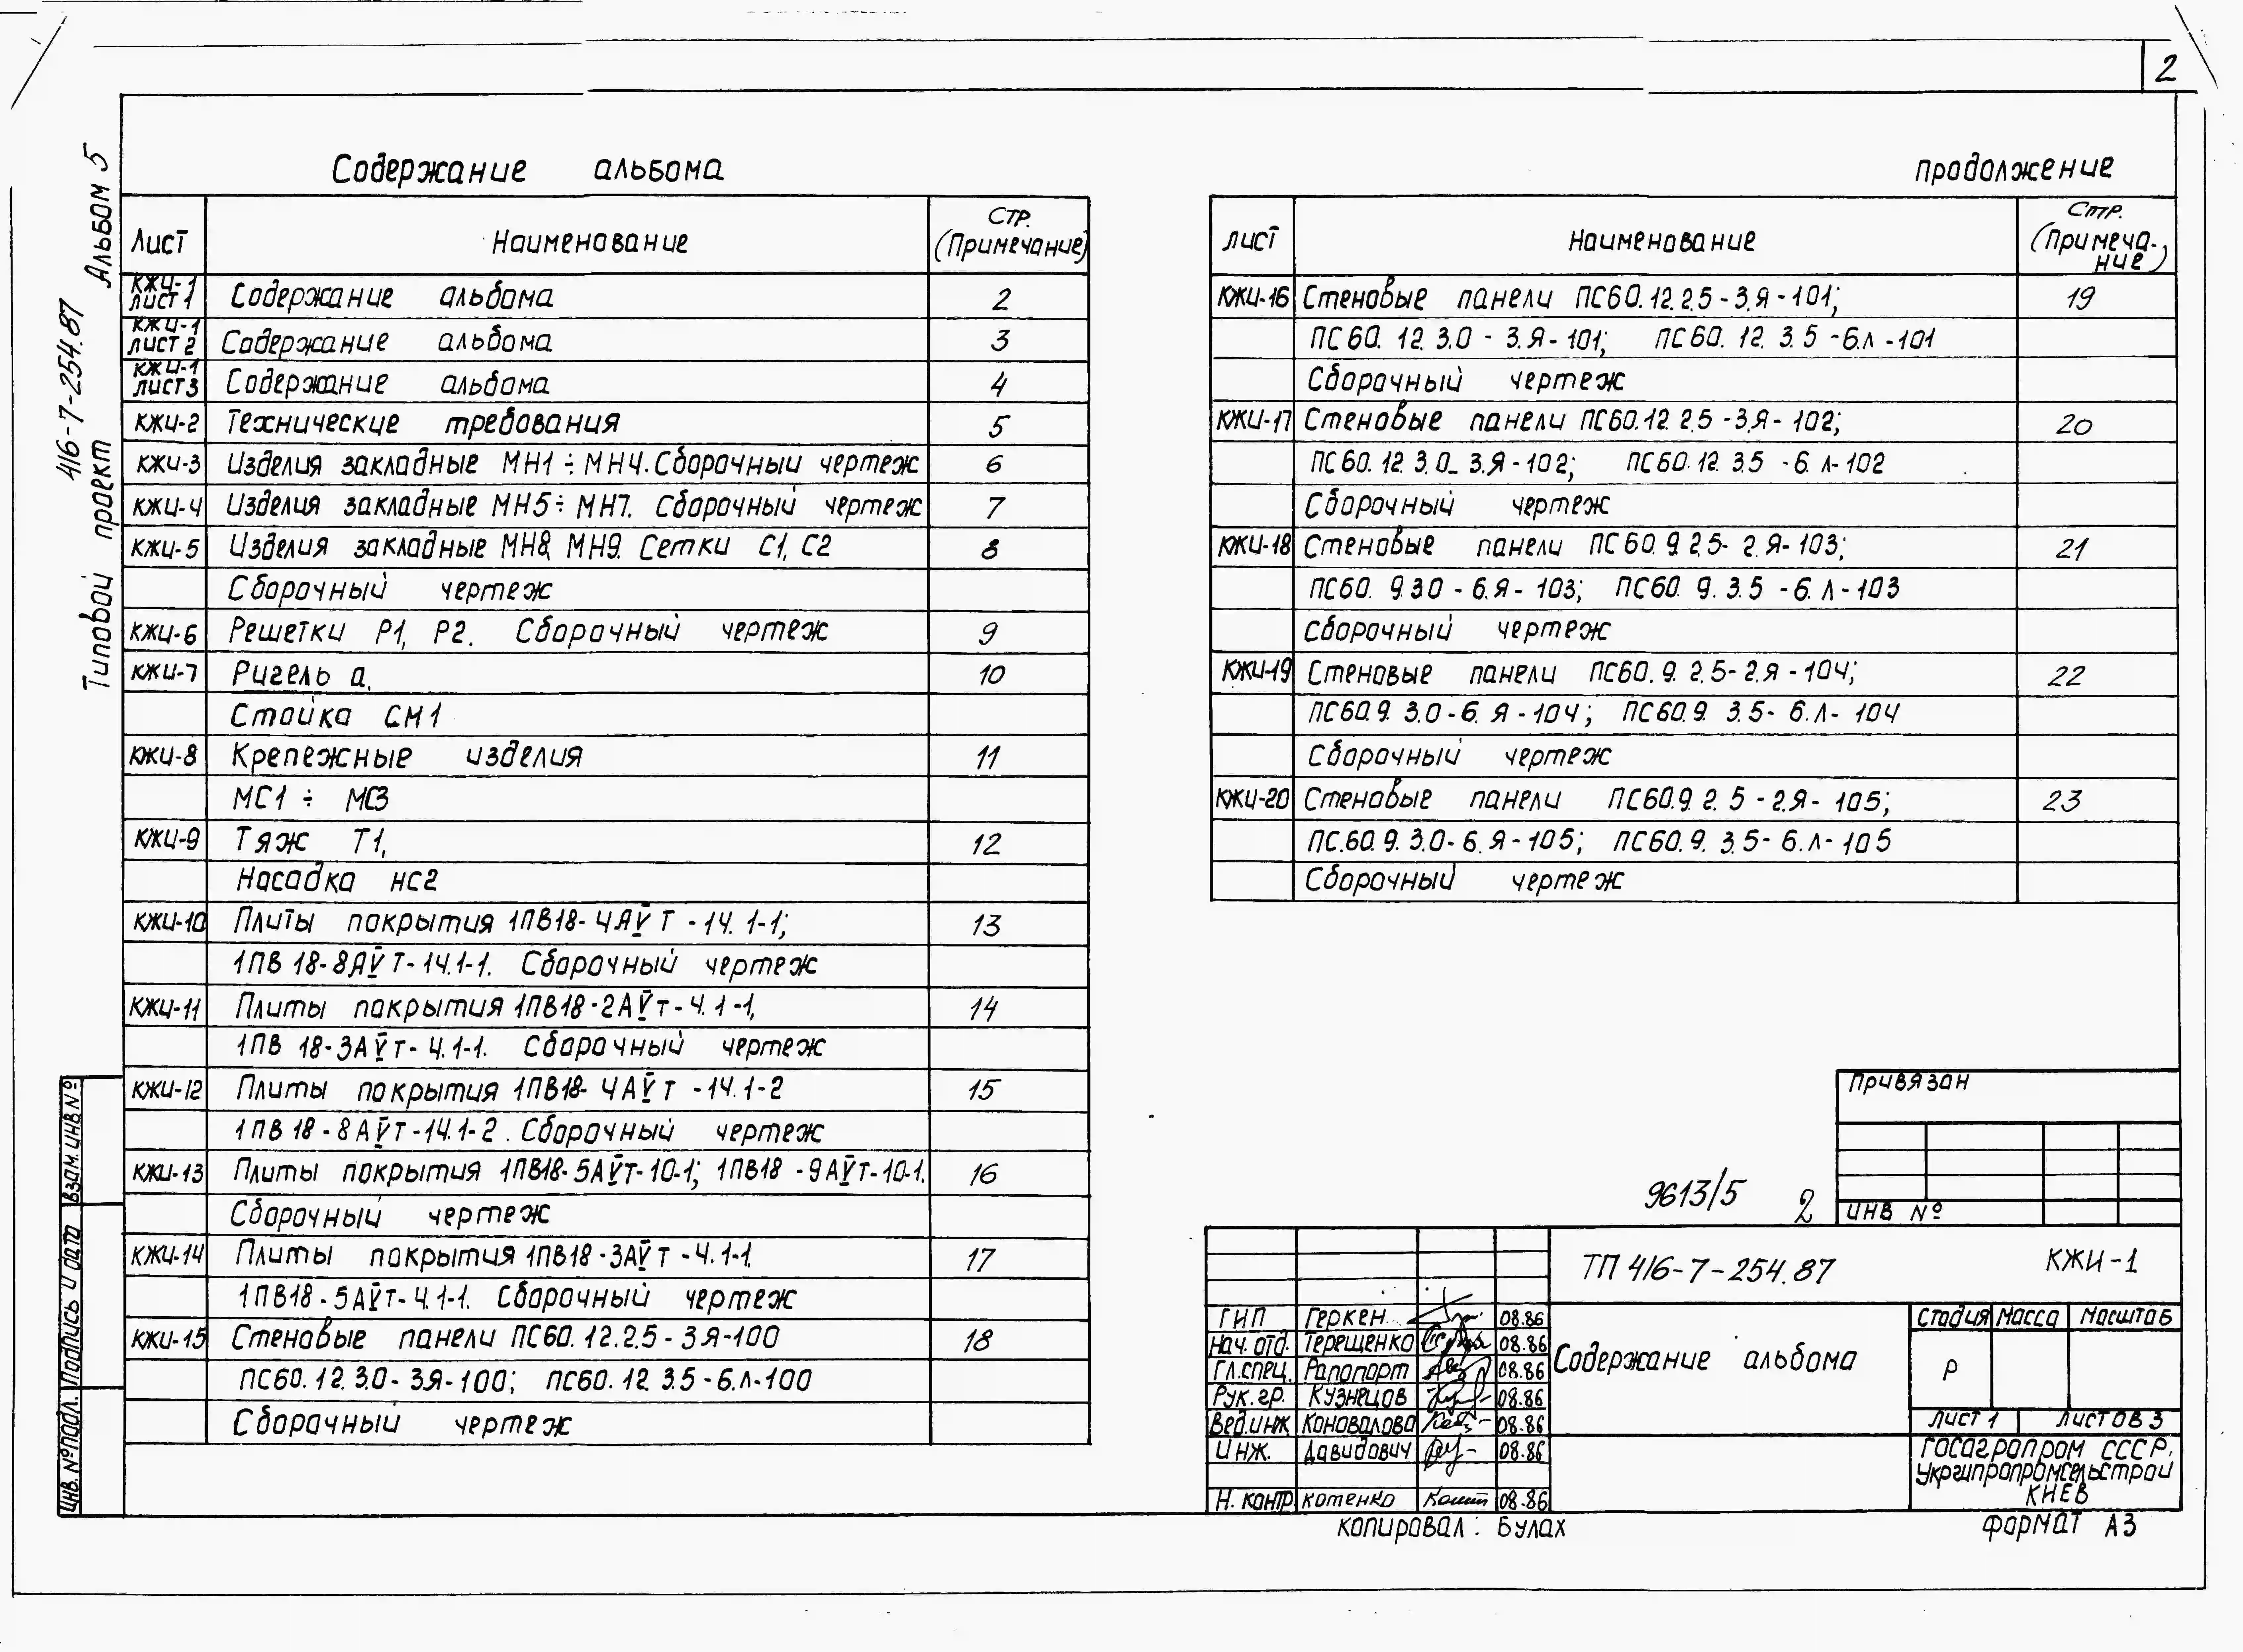 2
Альбом 5
416-7-254.87
Типовой проект
Содержание альбома
Лист Наименование Стр. (Примечание)
КЖИ-1 лист 1 Содержание альбома 2
КЖИ-1 лист 2 Содержание альбома 3
КЖИ-1 лист 3 Содержание альбома 4
КЖИ-2 Технические требования 5
КЖИ-3 Изделия закладные МН1÷МН4. Сборочный чертеж 6
КЖИ-4 Изделия закладные МН5÷МН7. Сборочный чертеж 7
КЖИ-5 Изделия закладные МН8, МН9. Сетки С1, С2 8
Сборочный чертеж
КЖИ-6 Решетки Р1, Р2. Сборочный чертеж 9
КЖИ-7 Ригель а, 10
Стойка СМ1
КЖИ-8 Крепежные изделия 11
МС1 ÷ МС3
КЖИ-9 Тяж Т1, 12
Насадка НС2
КЖИ-10 Плиты покрытия 1ПВ18-4АV Т-14.1-1; 13
1ПВ 18-8АV Т-14.1-1. Сборочный чертеж
КЖИ-11 Плиты покрытия 1ПВ18-2АVт-4.1-1, 14
1ПВ 18-3АVт-4.1-1. Сборочный чертеж
КЖИ-12 Плиты покрытия 1ПВ18-4АVт-14.1-2 15
1ПВ 18-8АVт-14.1-2. Сборочный чертеж
КЖИ-13 Плиты покрытия 1ПВ18-5АVт-10-1; 1ПВ18-9АVт-10-1. 16
Сборочный чертеж
КЖИ-14 Плиты покрытия 1ПВ18-3АVт-4.1-1. 17
1ПВ18-5АVт-4.1-1. Сборочный чертеж
КЖИ-15 Стеновые панели ПС60.12.2.5-3Я-100 18
ПС60.12.3.0-3Я-100; ПС60.12.3.5-6.Л-100
Сборочный чертеж
продолжение
лист Наименование Стр. (Примеча-ние)
КЖИ-16 Стеновые панели ПС60.12.2.5-3.Я-101; 19
ПС60.12.3.0-3.Я-101; ПС60.12.3.5-6.Л-101
Сборочный чертеж
КЖИ-17 Стеновые панели ПС60.12.2.5-3.Я-102; 20
ПС60.12.3.0-3.Я-102; ПС60.12.3.5-6.Л-102
Сборочный чертеж
КЖИ-18 Стеновые панели ПС60.9.2.5-2.Я-103; 21
ПС60.9.3.0-6.Я-103; ПС60.9.3.5-6.Л-103
Сборочный чертеж
КЖИ-19 Стеновые панели ПС60.9.2.5-2.Я-104; 22
ПС60.9.3.0-6.Я-104; ПС60.9.3.5-6.Л-104
Сборочный чертеж
КЖИ-20 Стеновые панели ПС60.9.2.5-2.Я-105; 23
ПС.60.9.3.0-6.Я-105; ПС60.9.3.5-6.Л-105
Сборочный чертеж
Привязан
ИНВ №
9613/5 2
ТП 416-7-254.87 КЖИ-1
ГИП Геркен 08.86
Нач. отд. Терещенко 08.86
Гл.спец. Рапопорт 08.86
Рук.гр. Кузнецов 08.86
Вед.инж. Коновалова 08.86
Инж. Давидович 08.86
Н. контр. Котенко 08.86
Содержание альбома
Стадия Масса Масштаб
Р
Лист 1 Листов 3
Госагропром СССР.
Укргипропромсельстрой
Киев
Копировал: Булах
Формат А3
Взам. инв №
Подпись и дата
Инв. № подл.